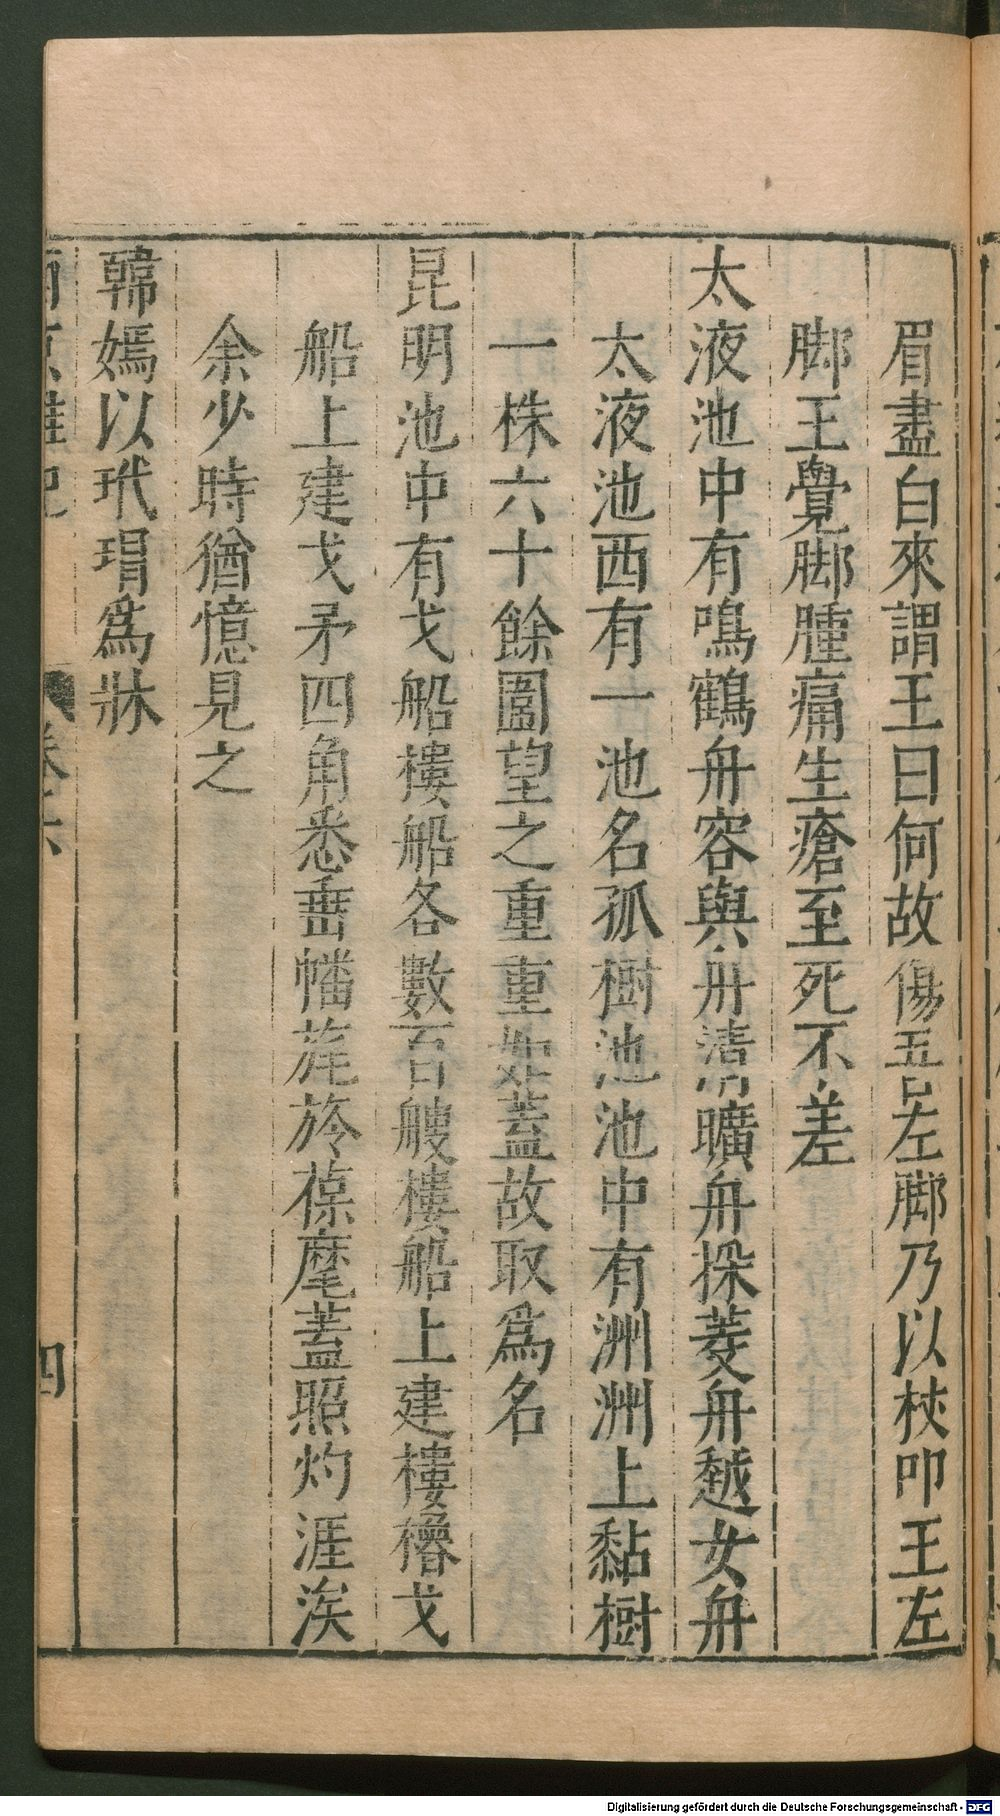 眉盡白來謂王曰何故傷吾左脚乃以杖叩王左
脚王覺脚腫痛生瘡至死不差
太液池中有鳴鶴舟容與舟清曠舟採菱舟越女舟
太液池西有一池名孤樹池池中有洲洲上黏樹
一株六十餘圍望之重重如蓋故取爲名
昆明池中有戈船樓船各數百艘樓船上建樓櫓戈
船上建戈矛四角悉垂幡旄旍葆麾蓋照灼涯涘
余少時猶憶見之
韓嫣以玳瑁爲牀
卷六
四
Digitalisierung gefördert durch die Deutsche Forschungsgemeinschaft - DFG